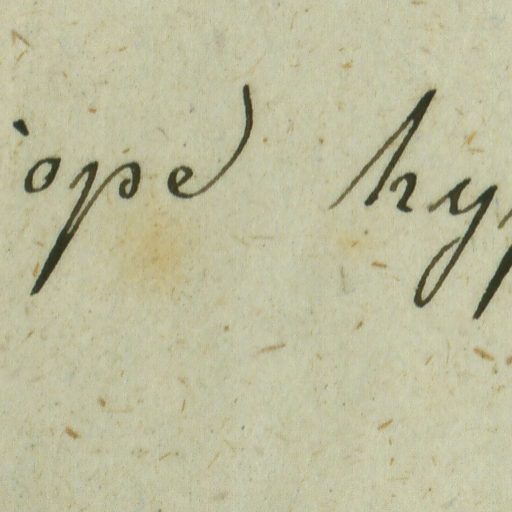 ope hy